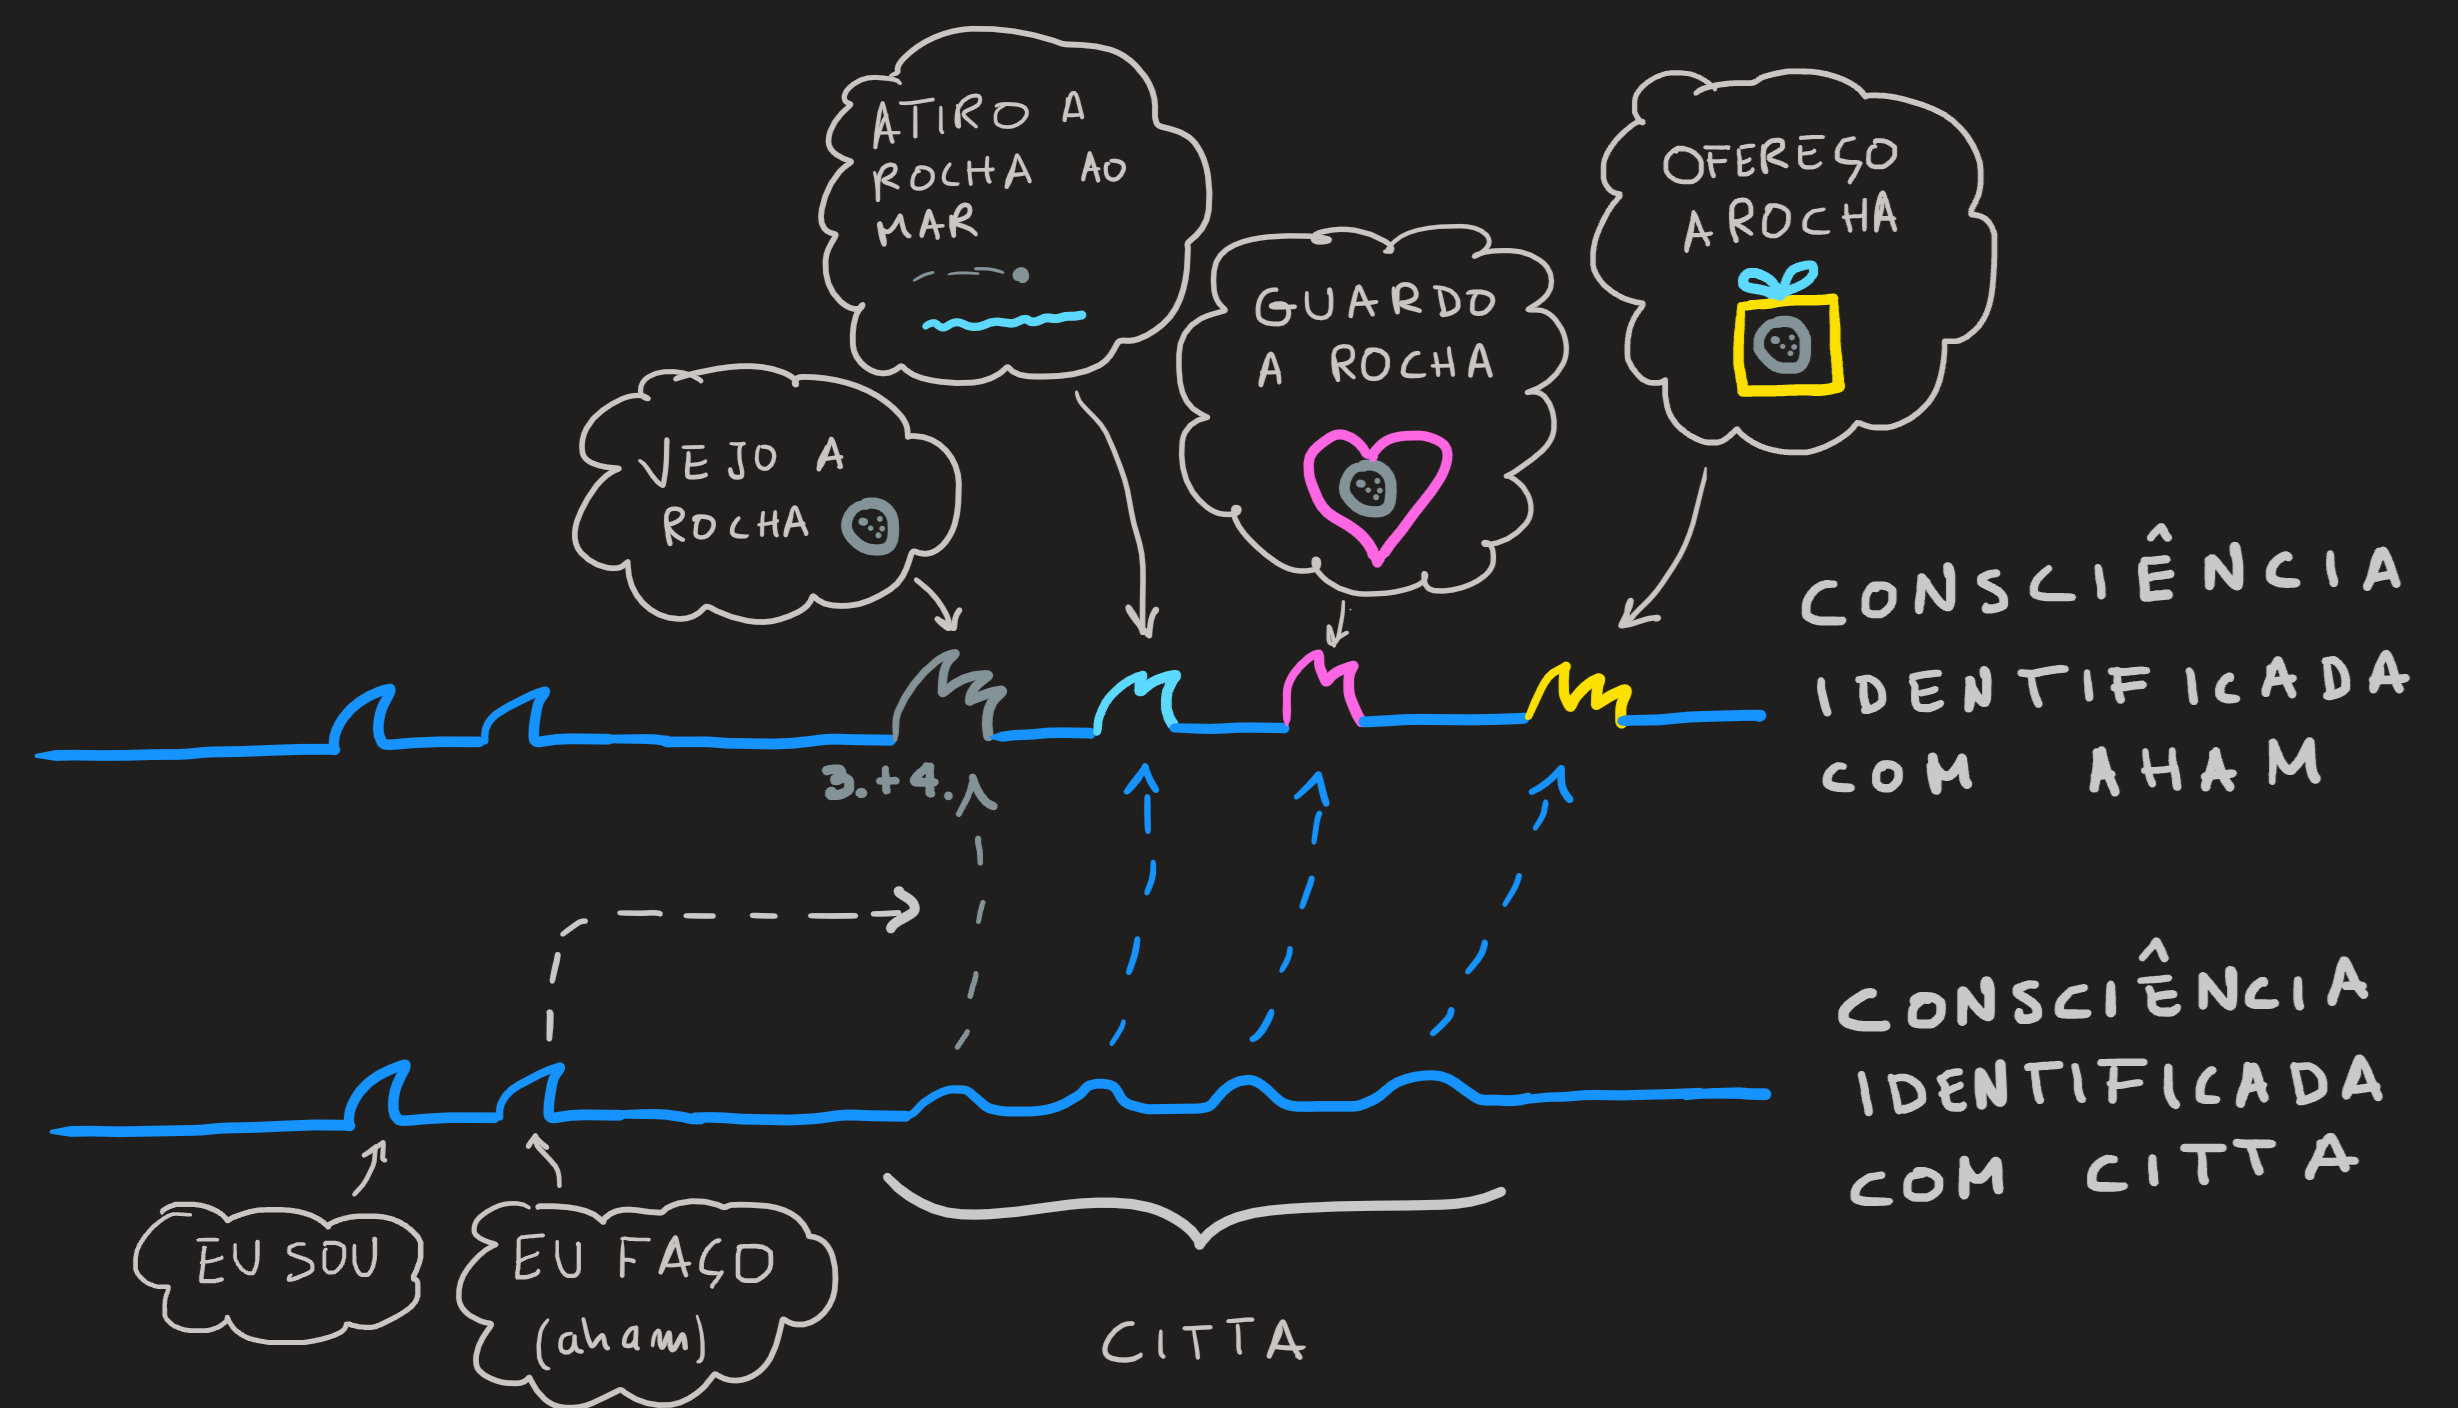 ATIRO A
ROCHA AO
MAR
OFEREÇO
A ROCHA
GUARDO
A ROCHA
VEJO A
ROCHA
CONSCIÊNCIA
IDENTIFICADA
COM AHAM
3.+4.
CONSCIÊNCIA
IDENTIFICADA
COM CITTA
EU SOU
EU FAÇO
(aham)
CITTA